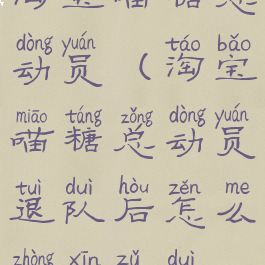 淘宝喵糖总
dòng yuán táo bǎo
动员(淘宝
miāo táng zǒng dòng yuán
喵糖总动员
tuì duì hòu zěn me
退队后怎么
zhòng xīn zǔ duì